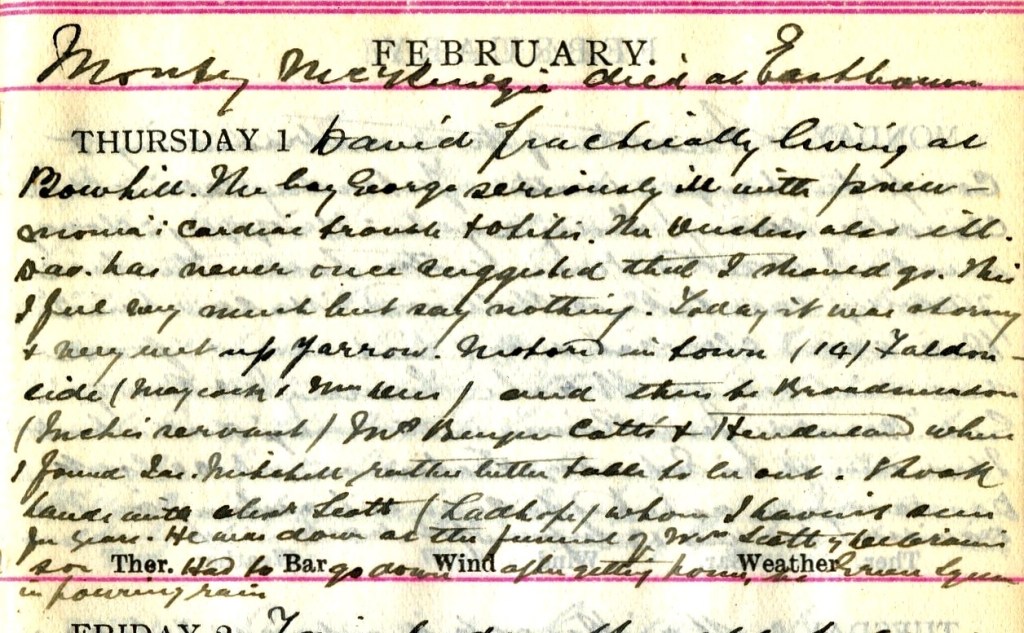 FEBRUARY.
Monty McKenzie died at Eastbourne
THURSDAY 1 David practically living at
Bowhill. The boy George seriously ill with pneu-
monia: cardiac trouble & otitis. The Duchess also ill.
Dav. has never once suggested that I should go. This
I feel very much but say nothing. Today it was stormy
& very wet up Yarrow. Motored in town (14) Faldon-
side ( & Mrs ) and then to Broadmeadows
( servant) Mrs Catts & Henderland where
I found Jas. Mitchell rather better & able to be out. Shook
hands with Scott (Ladhope) whom I haven't seen
for years. He was down at the funeral of Mrs Scott
son Ther. Had to Bar go down Wind after getting home, to Weather
in pouring rain
FRIDAY 2